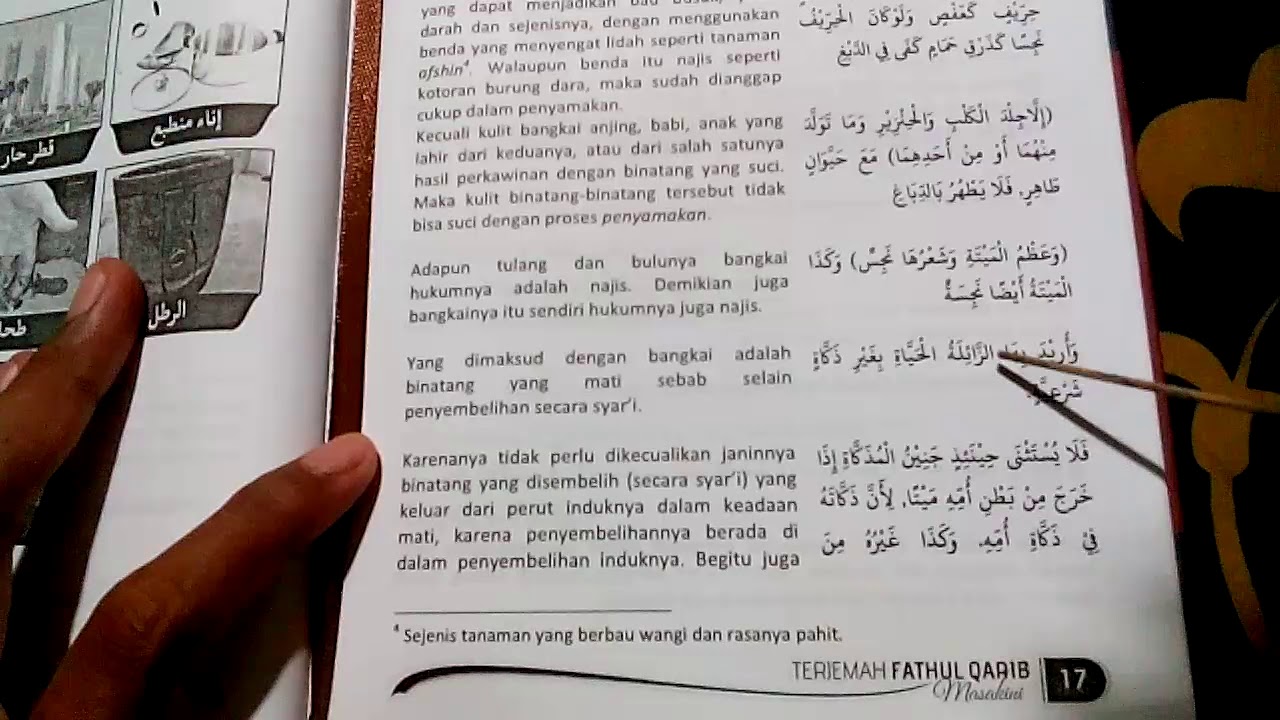 إناء منطبع
قطر حار
الرطل
طحا
yang dapat menjadikan bau
darah dan sejenisnya, dengan menggunakan
benda yang menyengat lidah seperti tanaman
afshin⁴. Walaupun benda itu najis seperti
kotoran burung dara, maka sudah dianggap
cukup dalam penyamakan.
Kecuali kulit bangkai anjing, babi, anak yang
lahir dari keduanya, atau dari salah satunya
hasil perkawinan dengan binatang yang suci.
Maka kulit binatang-binatang tersebut tidak
bisa suci dengan proses penyamakan.
Adapun tulang dan bulunya bangkai
hukumnya adalah najis. Demikian juga
bangkainya itu sendiri hukumnya juga najis.
Yang dimaksud dengan bangkai adalah
binatang yang mati sebab selain
penyembelihan secara syar'i.
Karenanya tidak perlu dikecualikan janinnya
binatang yang disembelih (secara syar'i) yang
keluar dari perut induknya dalam keadaan
mati, karena penyembelihannya berada di
dalam penyembelihan induknya. Begitu juga
حِرِّيْفٍ كَعَفْصٍ وَلَوْكَانَ الْحِرِّيْفُ
نَجِسًا كَذَرْقِ حَمَامٍ كَفَى فِي الدَّبْغِ
(إِلَّاجِلْدَ الْكَلْبِ وَالْخِنْزِيْرِ وَمَا تَوَلَّدَ
مِنْهُمَا أَوْ مِنْ أَحَدِهِمَا) مَعَ حَيَوَانٍ
طَاهِرٍ. فَلَا يَطْهُرُ بِالدِّبَاغِ
(وَعَظْمُ الْمَيْتَةِ وَشَعْرُهَا نَجِسٌ) وَكَذَا
الْمَيْتَةُ أَيْضًا نَجِسَةٌ
وَأُرِيْدَ بِهَا الزَّائِلَةُ الْحَيَاةِ بِغَيْرِ ذَكَاةٍ
شَرْعِيَّةٍ.
فَلَا يُسْتَثْنَى حِيْنَئِذٍ جَنِيْنُ الْمُذَكَّاةِ إِذَا
خَرَجَ مِنْ بَطْنِ أُمِّهِ مَيْتًا. لِأَنَّ ذَكَاتَهُ
فِيْ ذَكَاةِ أُمِّهِ. وَكَذَا غَيْرُهُ مِنَ
⁴ Sejenis tanaman yang berbau wangi dan rasanya pahit.
TERJEMAH FATHUL QARIB 17
Masakini